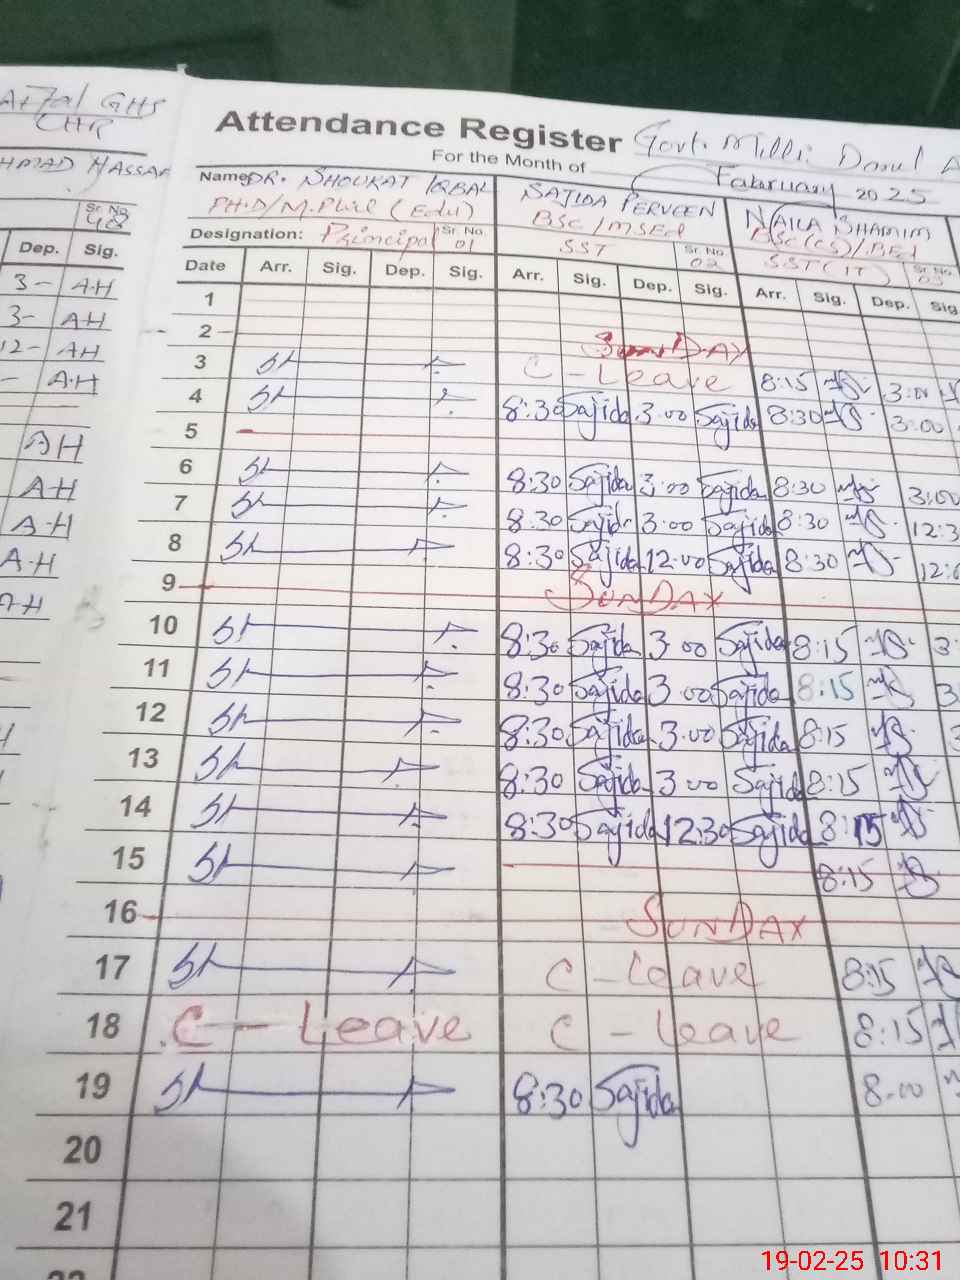 GHS
CHR
HASSAN
Sr. No.
48
Dep. Sig.
3- A.H
3- AH
12- AH
- A.H
AH
AH
A.H
A.H
AH
Attendance Register Govt. Milli Darul
For the Month of February 2025
Name DR. SHOUKAT IQBAL SAJIDA PERVEEN NAILA SHAMIM
PH.D/M.Phil (Edu) BSC/MSEd BSc(CS)/B.Ed
Designation: Principal Sr. No. 01 SST Sr. No. 02 SST(IT) Sr. No. 03
Date Arr. Sig. Dep. Sig. Arr. Sig. Dep. Sig. Arr. Sig. Dep. Sig.
1
2 SUNDAY
3 C - Leave 8:15 3:00
4 8:30 Sajida 3:00 Sajida 8:30 3:00
5
6 8:30 Sajida 3:00 Sajida 8:30 3:00
7 8:30 Sajida 3:00 Sajida 8:30 12:3
8 8:30 Sajida 12:00 Sajida 8:30 12:0
9 SUNDAY
10 8:30 Sajida 3:00 Sajida 8:15 3:
11 8:30 Sajida 3:00 Sajida 8:15 3
12 8:30 Sajida 3:00 Sajida 8:15 3
13 8:30 Sajida 3:00 Sajida 8:15
14 8:30 Sajida 12:30 Sajida 8:15
15 8:15
16 SUNDAY
17 C - Leave 8:15
18 C - Leave C - Leave 8:15
19 8:30 Sajida 8:00
20
21
22
19-02-25 10:31